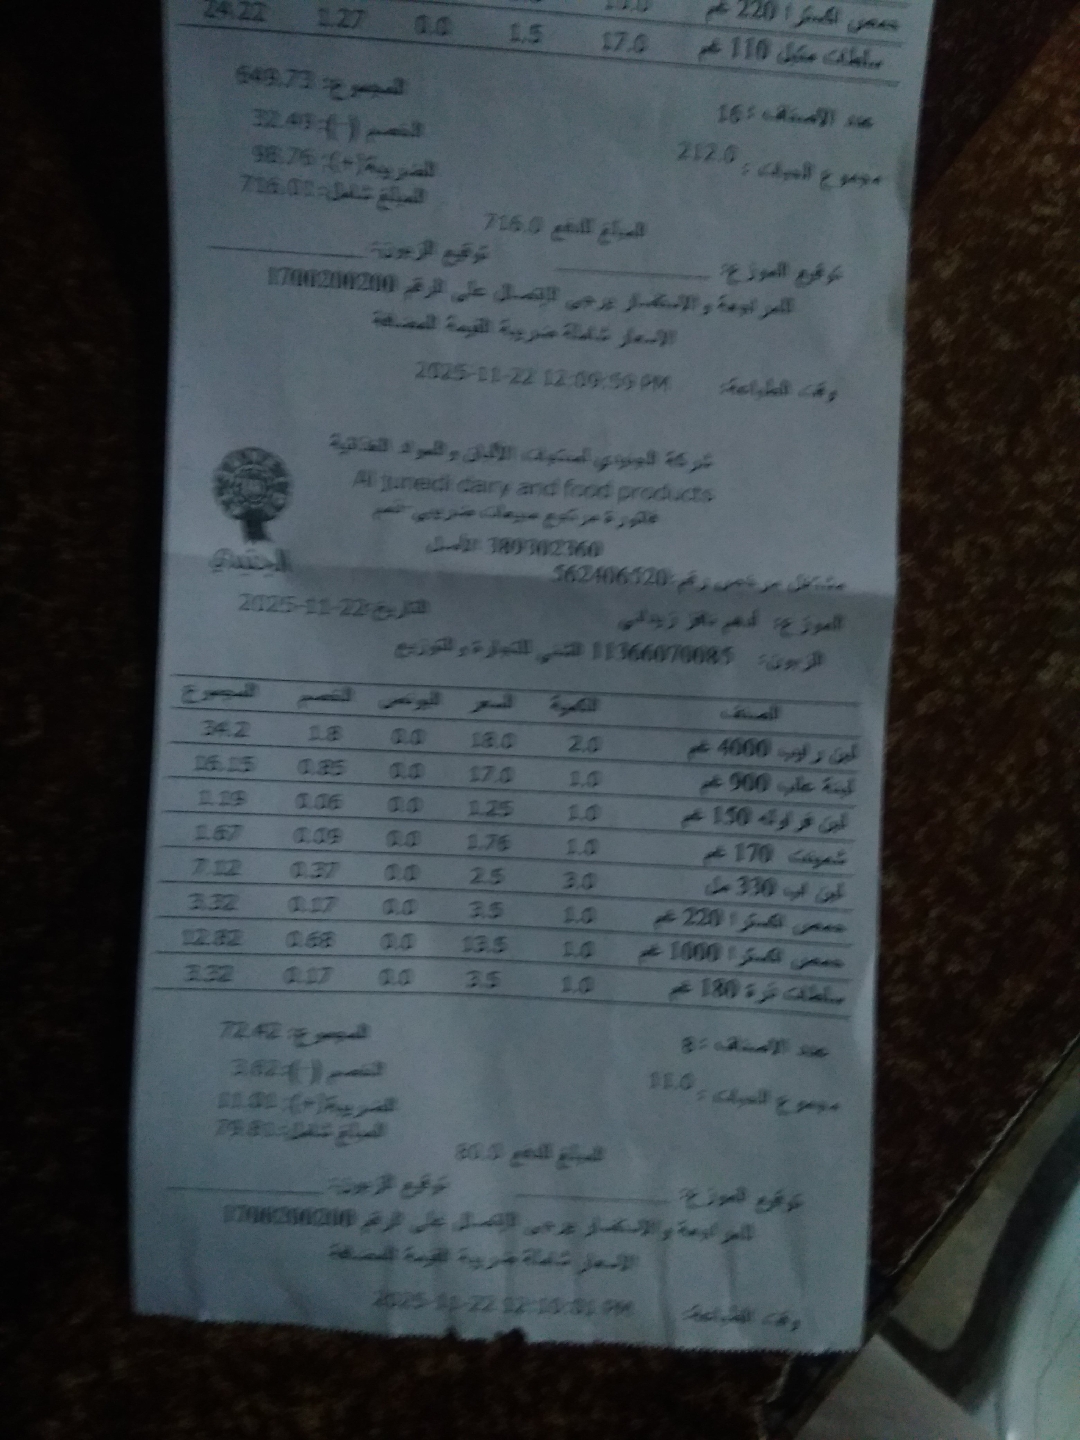 حمص اكسترا 220 غم
سلطات متبل 110 غم 17.0 1.5 0.0 1.27 24.22
عدد الاصناف : 16 المجموع: 649.73
مجموع الحبات : 212.0 الخصم (-): 32.49
الضريبة(+): 98.76
المبلغ شامل: 716.01
المبلغ للدفع 716.0
توقيع الموزع: توقيع الزبون:
للمراجعة والاستفسار يرجى الإتصال على الرقم 1700200200
الاسعار شاملة ضريبة القيمة المضافة
وقت الطباعة: 2025-11-22 12:09:56 PM
شركة الجنيدي لمنتجات الألبان و المواد الغذائية
Al junedi dairy and food products
فاتورة مرتجع مبيعات ضريبي-ختم
380302360 الأصل
الجنيدي
مشتغل مرخص رقم: 562406520
الموزع: ادهم زيداني التاريخ: 2025-11-22
الزبون: 11366070085 للتجارة و التوزيع
الصنف الكمية السعر البونص الخصم المجموع
لبن رايب 4000 غم 2.0 18.0 0.0 1.8 34.2
لبنة علب 900 غم 1.0 17.0 0.0 0.85 16.15
لبن فراوله 150 غم 1.0 1.25 0.0 0.06 1.19
شمينت 170 غم 1.0 1.76 0.0 0.09 1.67
لبن اب 330 مل 3.0 2.5 0.0 0.37 7.12
حمص اكسترا 220 غم 1.0 3.5 0.0 0.17 3.32
حمص اكسترا 1000 غم 1.0 13.5 0.0 0.68 12.82
سلطات ذرة 180 غم 1.0 3.5 0.0 0.17 3.32
عدد الاصناف : 8 المجموع: 72.42
مجموع الحبات : 11.0 الخصم (-): 3.62
الضريبة(+): 11.01
المبلغ شامل: 79.81
المبلغ للدفع 80.0
توقيع الموزع: توقيع الزبون:
للمراجعة والاستفسار يرجى الإتصال على الرقم 1700200200
الاسعار شاملة ضريبة القيمة المضافة
وقت الطباعة: 2025-11-22 12:10:01 PM